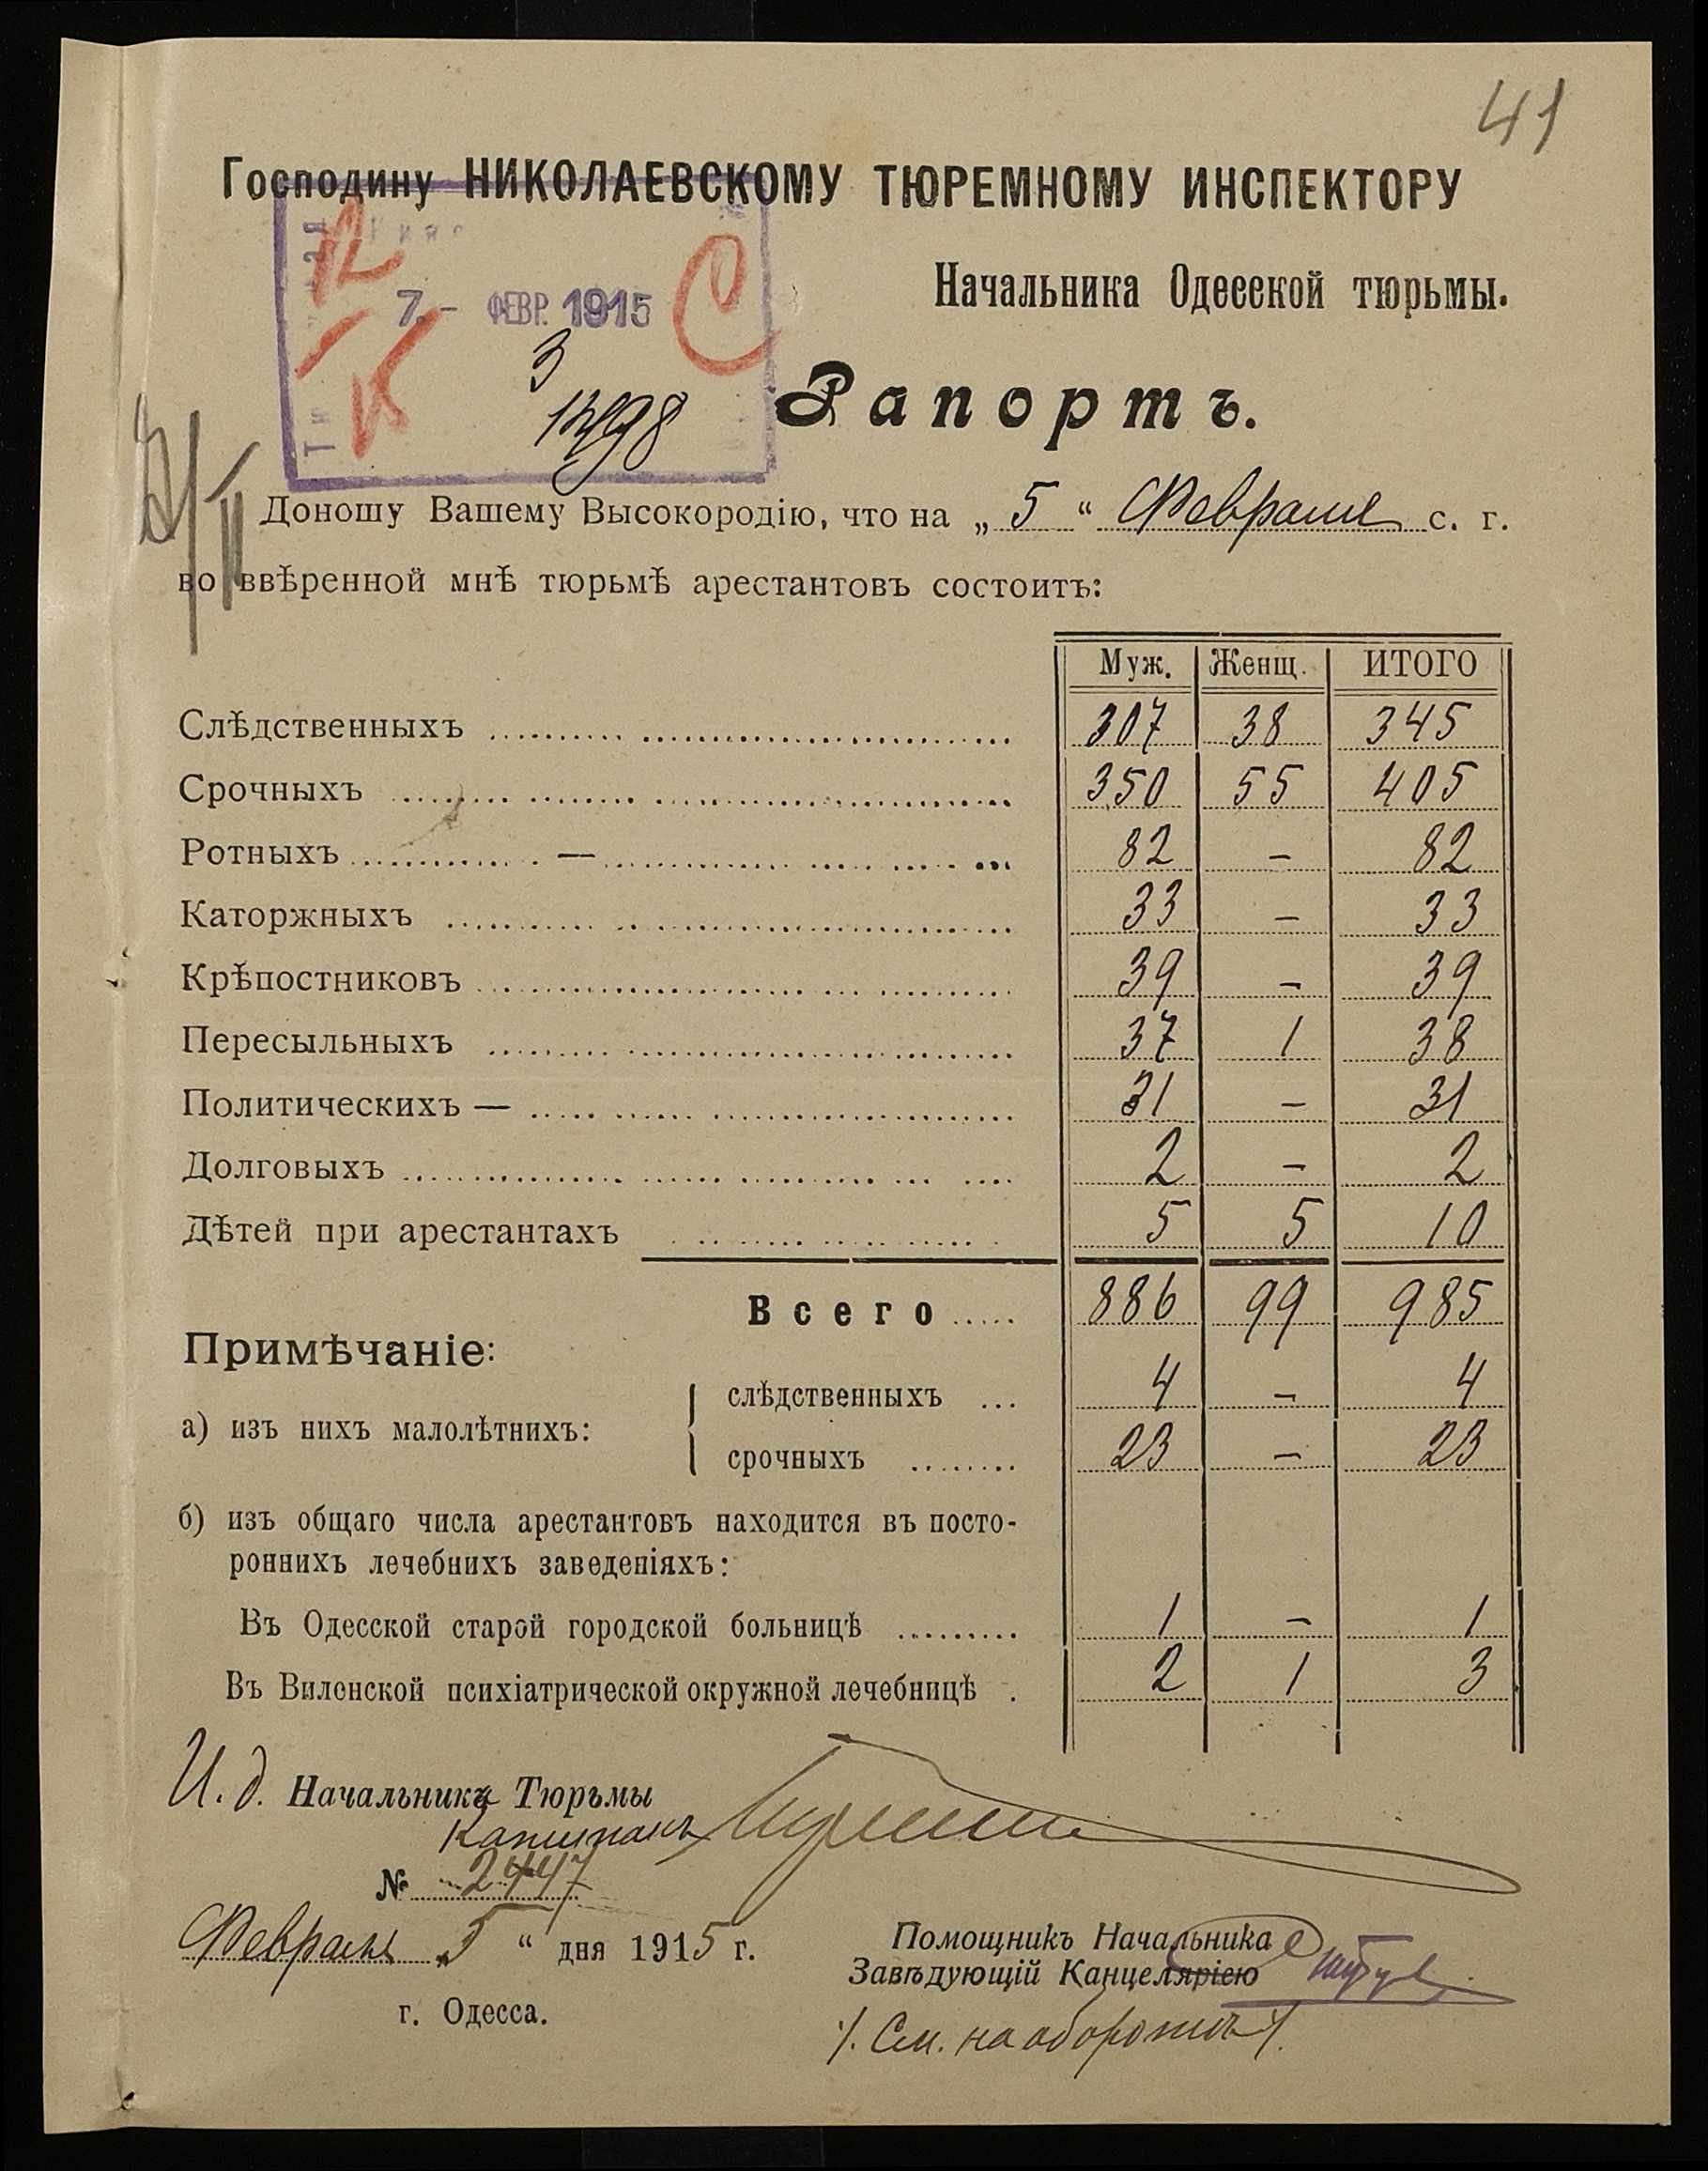 41
Господину НИКОЛАЕВСКОМУ ТЮРЕМНОМУ ИНСПЕКТОРУ
Начальника Одесской тюрьмы.
7 - ФЕВР. 1915
Рапортъ.
Доношу Вашему Высокородію, что на „5“ Февраля с. г.
во ввѣренной мнѣ тюрьмѣ арестантовъ состоитъ:
Муж. Женщ. ИТОГО
Слѣдственныхъ 307 38 345
Срочныхъ 350 55 405
Ротныхъ — 82 - 82
Каторжныхъ 33 - 33
Крѣпостниковъ 39 - 39
Пересыльныхъ 37 1 38
Политическихъ — 31 - 31
Долговыхъ 2 - 2
Дѣтей при арестантахъ 5 5 10
Всего 886 99 985
Примѣчаніе:
а) изъ нихъ малолѣтнихъ:
слѣдственныхъ 4 - 4
срочныхъ 23 - 23
б) изъ общаго числа арестантовъ находится въ посто-
роннихъ лечебнихъ заведеніяхъ:
Въ Одесской старой городской больницѣ 1 - 1
Въ Виленской психіатрической окружной лечебницѣ 2 1 3
И. д. Начальника Тюрьмы
Капитанъ
№ 2447
Февраля „5“ дня 1915 г.
г. Одесса.
Помощникъ Начальника
Завѣдующій Канцеляріею
/. См. на оборотѣ /.